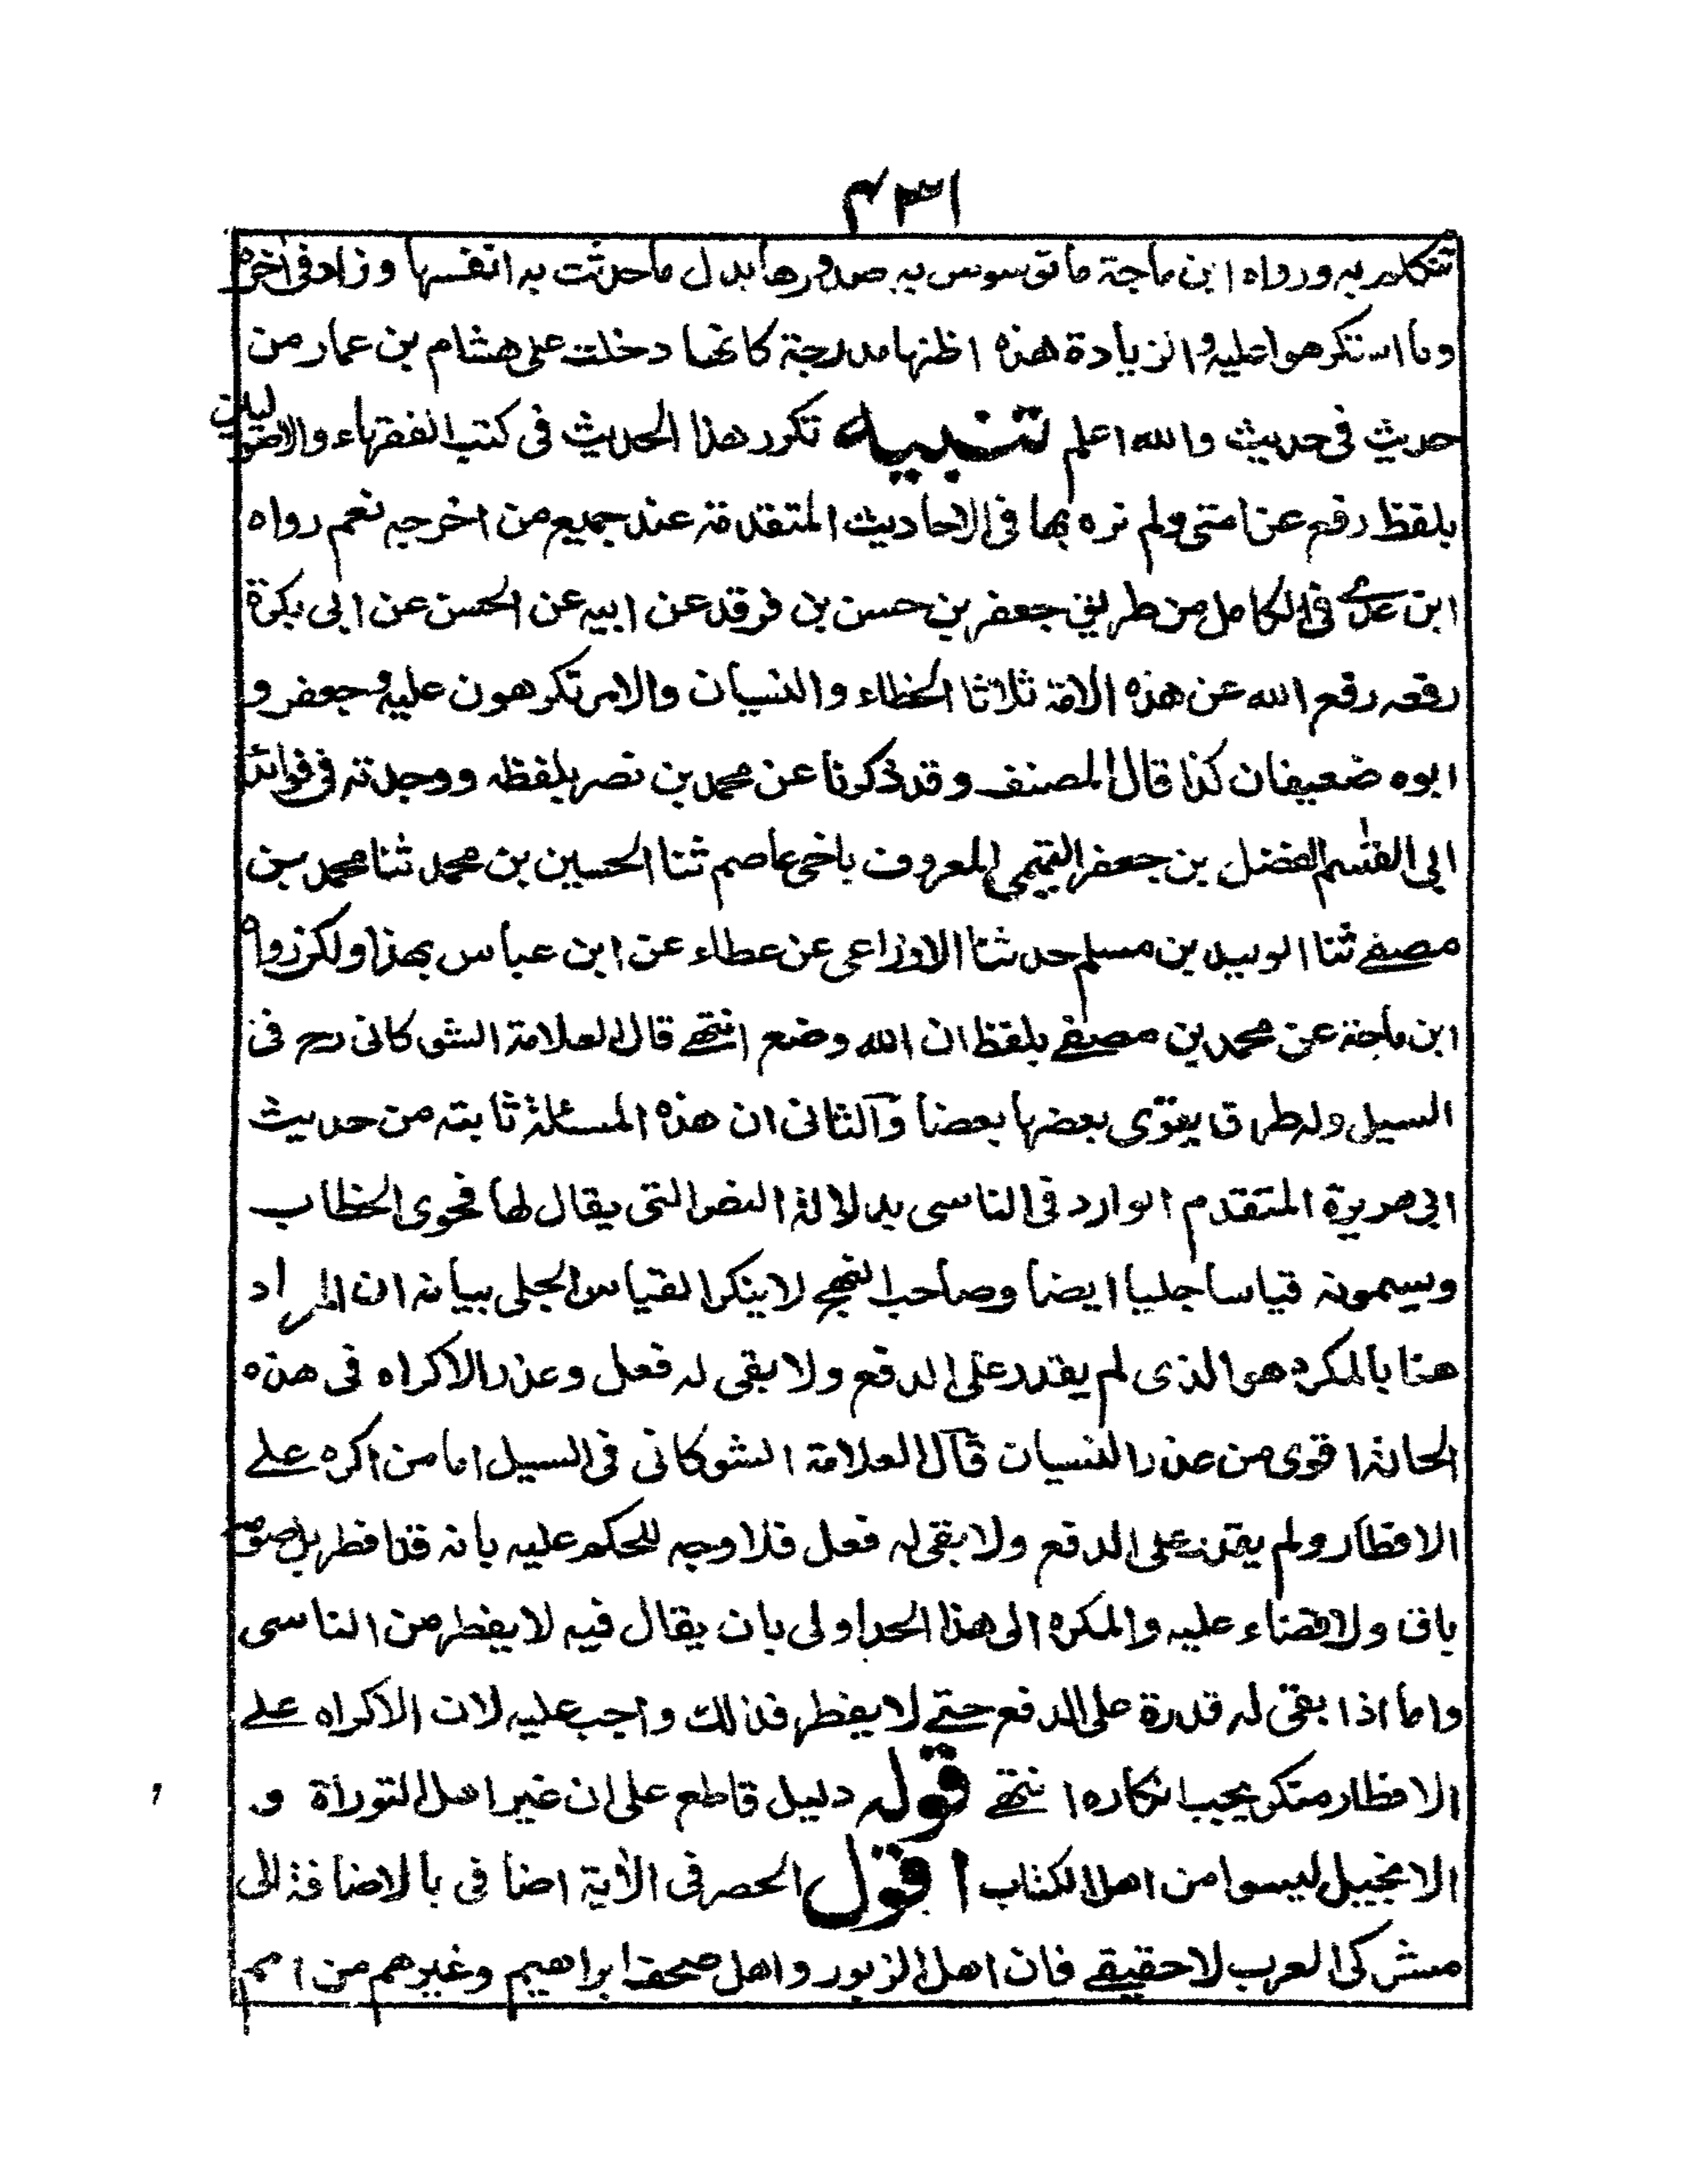 ٤٣١
تتكلم به ورواه ابن ماجة ما توسوس به صدورها بدل ما حدثت به انفسها وزاد فى اخره
وما استكرهوا عليه والزيادة هذه اظنها مدرجة كانها دخلت على هشام بن عمار من
حديث فى حديث والله اعلم تنبيه تكرر هذا الحديث فى كتب الفقهاء والاصوليين
بلفظ رفع عن امتى ولم نره بها فى الاحاديث المتقدمة عند جميع من اخرجه نعم رواه
ابن عدى فى الكامل من طريق جعفر بن حسن بن فرقد عن ابيه عن الحسن عن ابى بكرة
رفعه رفع الله عن هذه الامة ثلاثا الخطاء والنسيان والامر تكرهون عليه وجعفر و
ابوه ضعيفان كذا قال المصنف وقد ذكرنا عن محمد بن نصر بلفظه ووجدته فى فوائد
ابى القسم الفضل بن جعفر التيمى المعروف باخى عاصم ثنا الحسين بن محمد ثنا محمد بن
مصفے ثنا الوليد بن مسلم حدثنا الاوزاعى عن عطاء عن ابن عباس بهذا ولكن رواه
ابن ماجة عن محمد بن مصفے بلفظ ان الله وضع انتهے قال العلامة الشوكانى رح فى
السيل وله طرق يقوى بعضها بعضا والثانى ان هذه المسئلة ثابته من حديث
ابى هريرة المتقدم الوارد فى الناسى بدلالة النص التى يقال لها فحوى الخطاب
ويسمونه قياسا جليا ايضا وصاحب النهج لا ينكر القياس الجلى بيانه ان المراد
هنا بالمكره هو الذى لم يقدر على الدفع ولا بقى له فعل وعذر الاكراه فى هذه
الحالة اقوى من عذر النسيان قال العلامة الشوكانى فى السيل اما من اكره علے
الافطار ولم يقدر على الدفع ولا بقى له فعل فلا وجه للحكم عليه بانه قد افطر بل صومه
باق ولا قضاء عليه والمكره الى هذا الحد اولى بان يقال فيه لا يفطر من الناسى
واما اذا بقى له قدرة على الدفع حتے لا يفطر فذلك واجب عليه لان الاكراه علے
الافطار منكر يجب انكاره انتهے قوله دليل قاطع على ان غير اهل التوراة و
الانجيل ليسوا من اهل الكتاب اقول الحصر فى الآية اضافى بالاضافة الى
مشركى العرب لا حقيقے فان اهل الزبور واهل صحف ابراهيم وغيرهم من امم